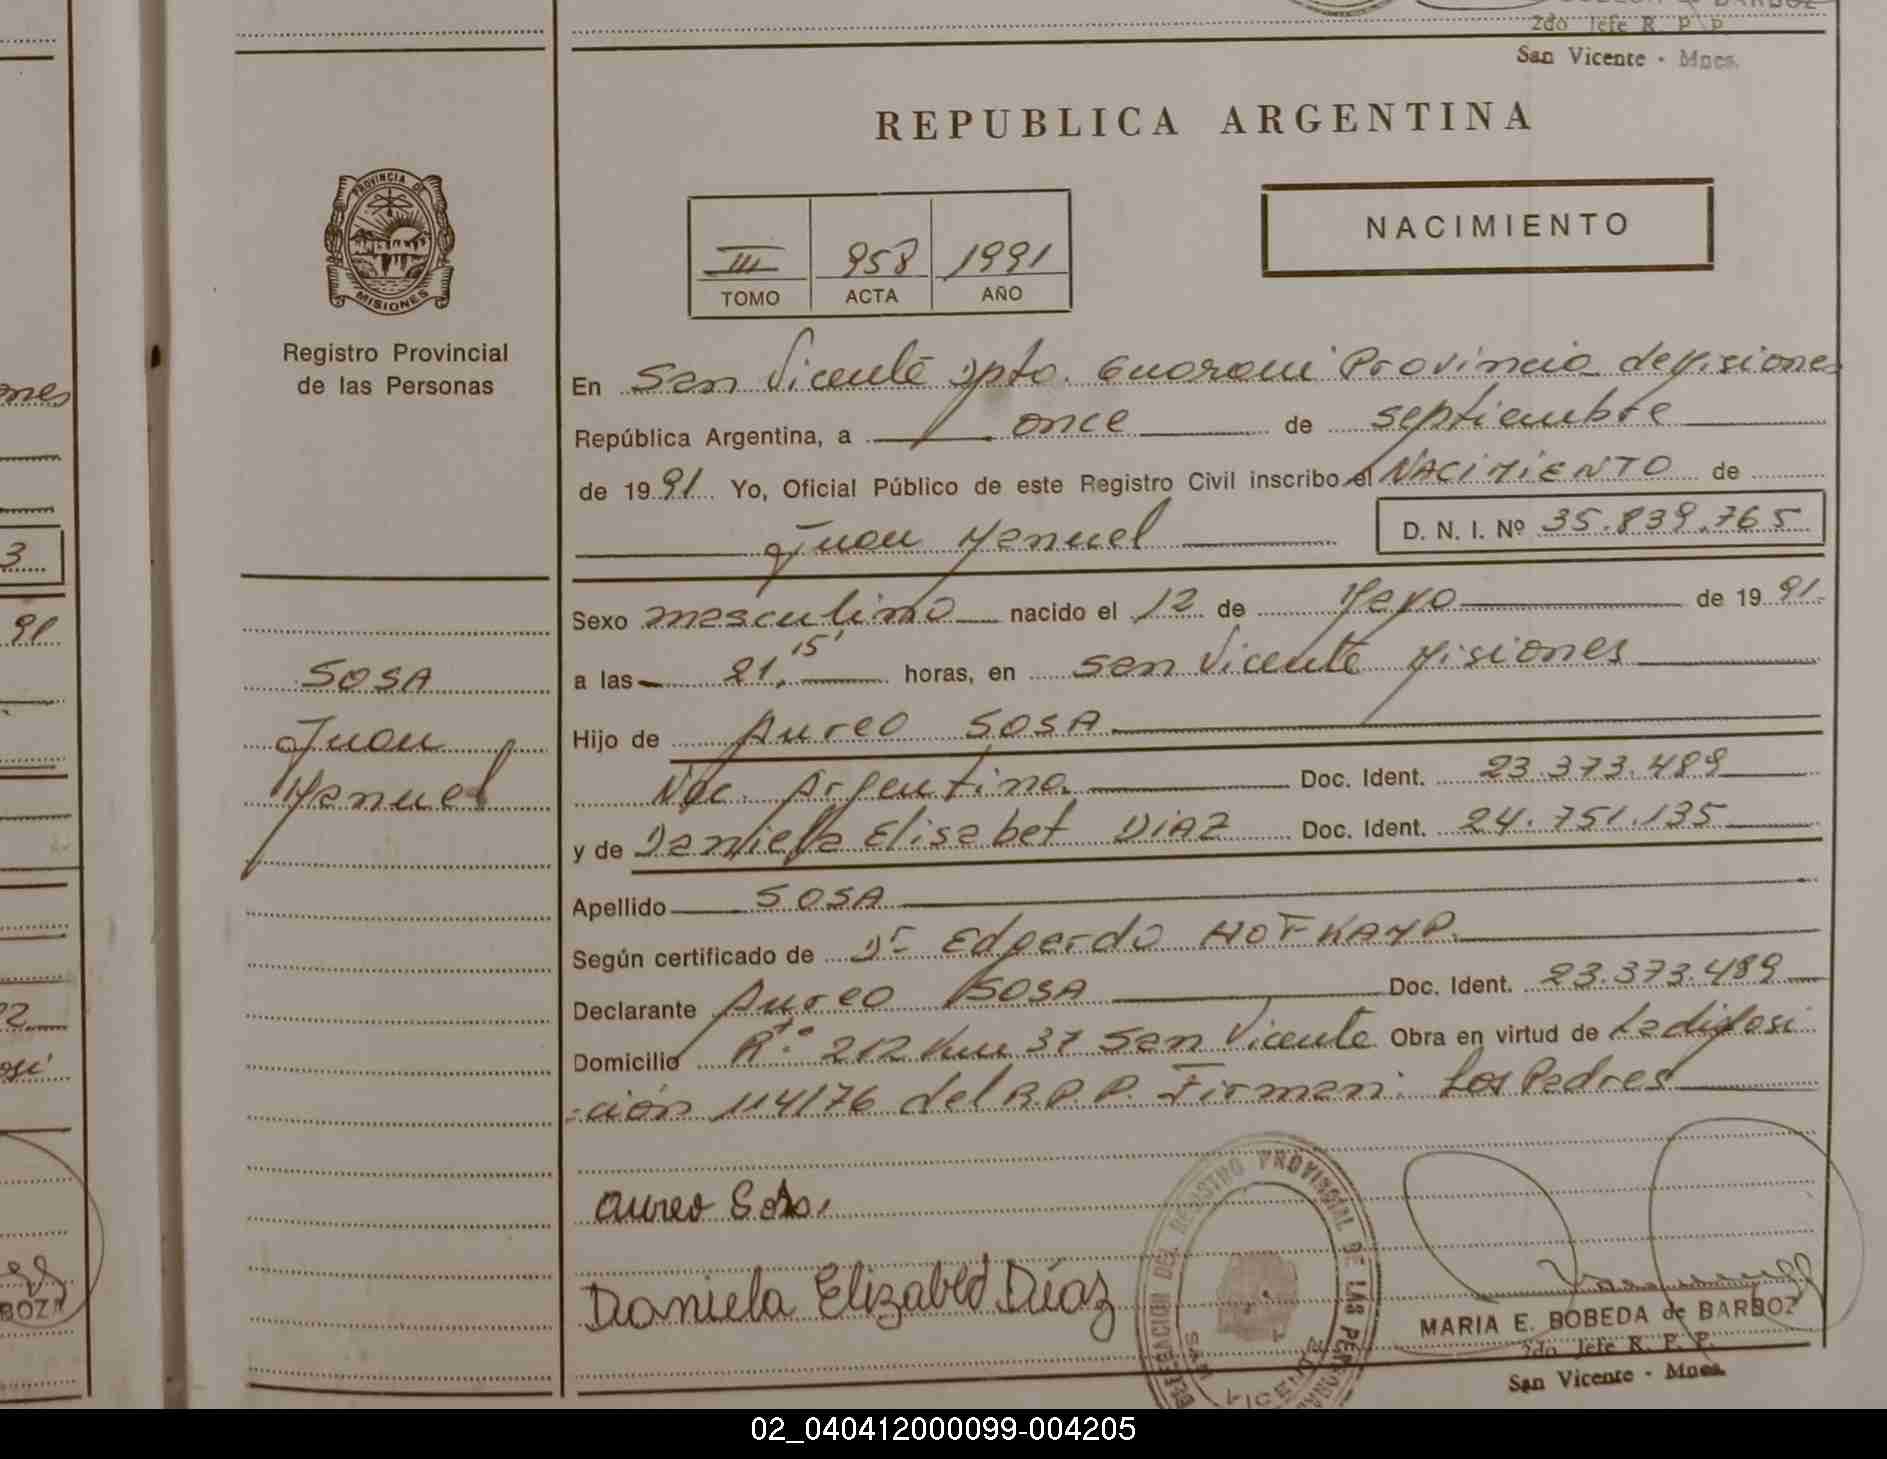 2do Jefe R. P. P.
San Vicente - Mnes.
REPUBLICA ARGENTINA
PROVINCIA DE
MISIONES
Registro Provincial
de las Personas
III 958 1991
TOMO ACTA AÑO
NACIMIENTO
En San Vicente Dpto. Guarani Provincia de Misiones
República Argentina, a once de septiembre
de 1991 Yo, Oficial Público de este Registro Civil inscribo el NACIMIENTO de
Juan Manuel D. N. I. Nº 35.839.765
Sexo masculino nacido el 12 de Mayo de 1991
a las 21, 15' horas, en San Vicente Misiones
Hijo de Aureo SOSA
Nac. Argentina Doc. Ident. 23.373.489
y de Daniela Elisabet DIAZ Doc. Ident. 24.751.135
Apellido SOSA
Según certificado de Dr Edgardo HOFKAMP.
Declarante Aureo SOSA Doc. Ident. 23.373.489
Domicilio Rta. 212 Km 37 San Vicente Obra en virtud de La disposi
-ción 114/76 del R.P.P. Firman: Los Padres
SOSA
Juan
Manuel
Aureo Sosa
Daniela Elizabed Díaz
DELEGACION DEL REGISTRO PROVINCIAL DE LAS PERSONAS
SAN VICENTE
MARIA E. BOBEDA de BARBOZ
2do Jefe R. P. P.
San Vicente - Mnes.
02_040412000099-004205